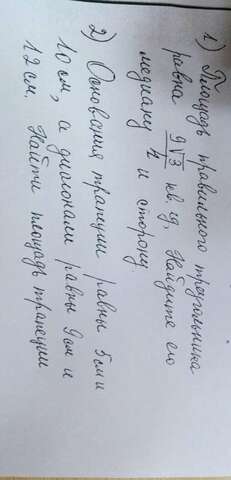 1) Площадь правильного треугольника
равна 9√3/4 кв. ед. Найдите его
медиану и сторону.
2) Основания трапеции равны 5см и
10 см, а диагонали равны 9см и
12 см. Найти площадь трапеции